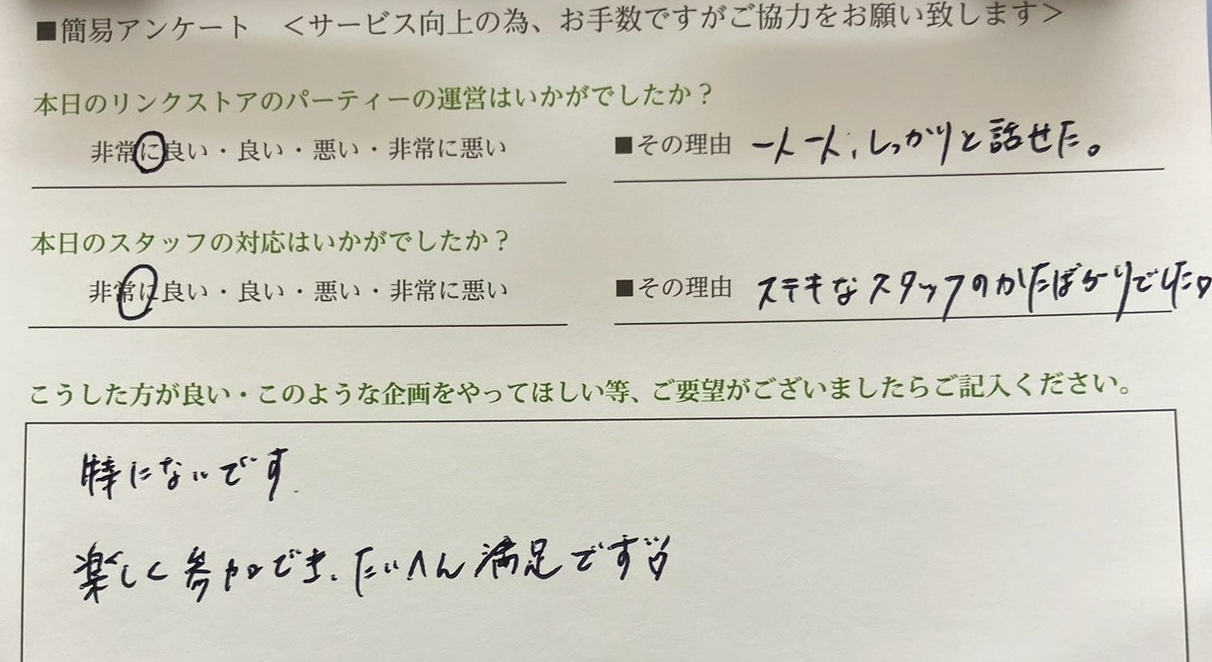 ■簡易アンケート ＜サービス向上の為、お手数ですがご協力をお願い致します＞
本日のリンクストアのパーティーの運営はいかがでしたか？
非常に良い・良い・悪い・非常に悪い ■その理由 一人一人、しっかりと話せた。
本日のスタッフの対応はいかがでしたか？
非常に良い・良い・悪い・非常に悪い ■その理由 ステキなスタッフのかたばかりでした♡
こうした方が良い・このような企画をやってほしい等、ご要望がございましたらご記入ください。
特にないです.
楽しく参加でき、たいへん満足です♡